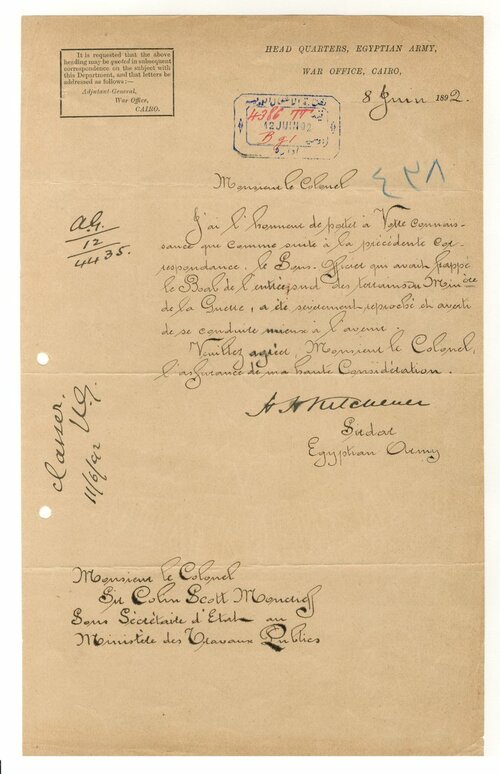 It is requested that the above
heading may be quoted in subsequent
correspondence on the subject with
this Department, and that letters be
addressed as follows:—
Adjutant-General,
War Office,
CAIRO.
HEAD QUARTERS, EGYPTIAN ARMY,
WAR OFFICE, CAIRO,
8 Juin 1892.
4386
12 JUIN 92
٤٢٨
A.G.
12
4435.
Monsieur le Colonel
J'ai l'honneur de porter à Votre connais-
sance que comme suite à la précédente cor-
respondance, le Sous Officier qui avait frappé
le Bab de l'entrée sud des terrains du Minère
de la Guerre, a été sévèrement reproché et averti
de se conduire mieux à l'avenir.
Veuillez agréer, Monsieur le Colonel,
l'assurance de ma haute Considération.
H H Kitchener
Sirdar
Egyptian Army
Classer.
11/6/92
Monsieur le Colonel
Sir Colin Scott Moncrieff
Sous Sécrétaire d'Etat au
Ministère des Travaux Publics